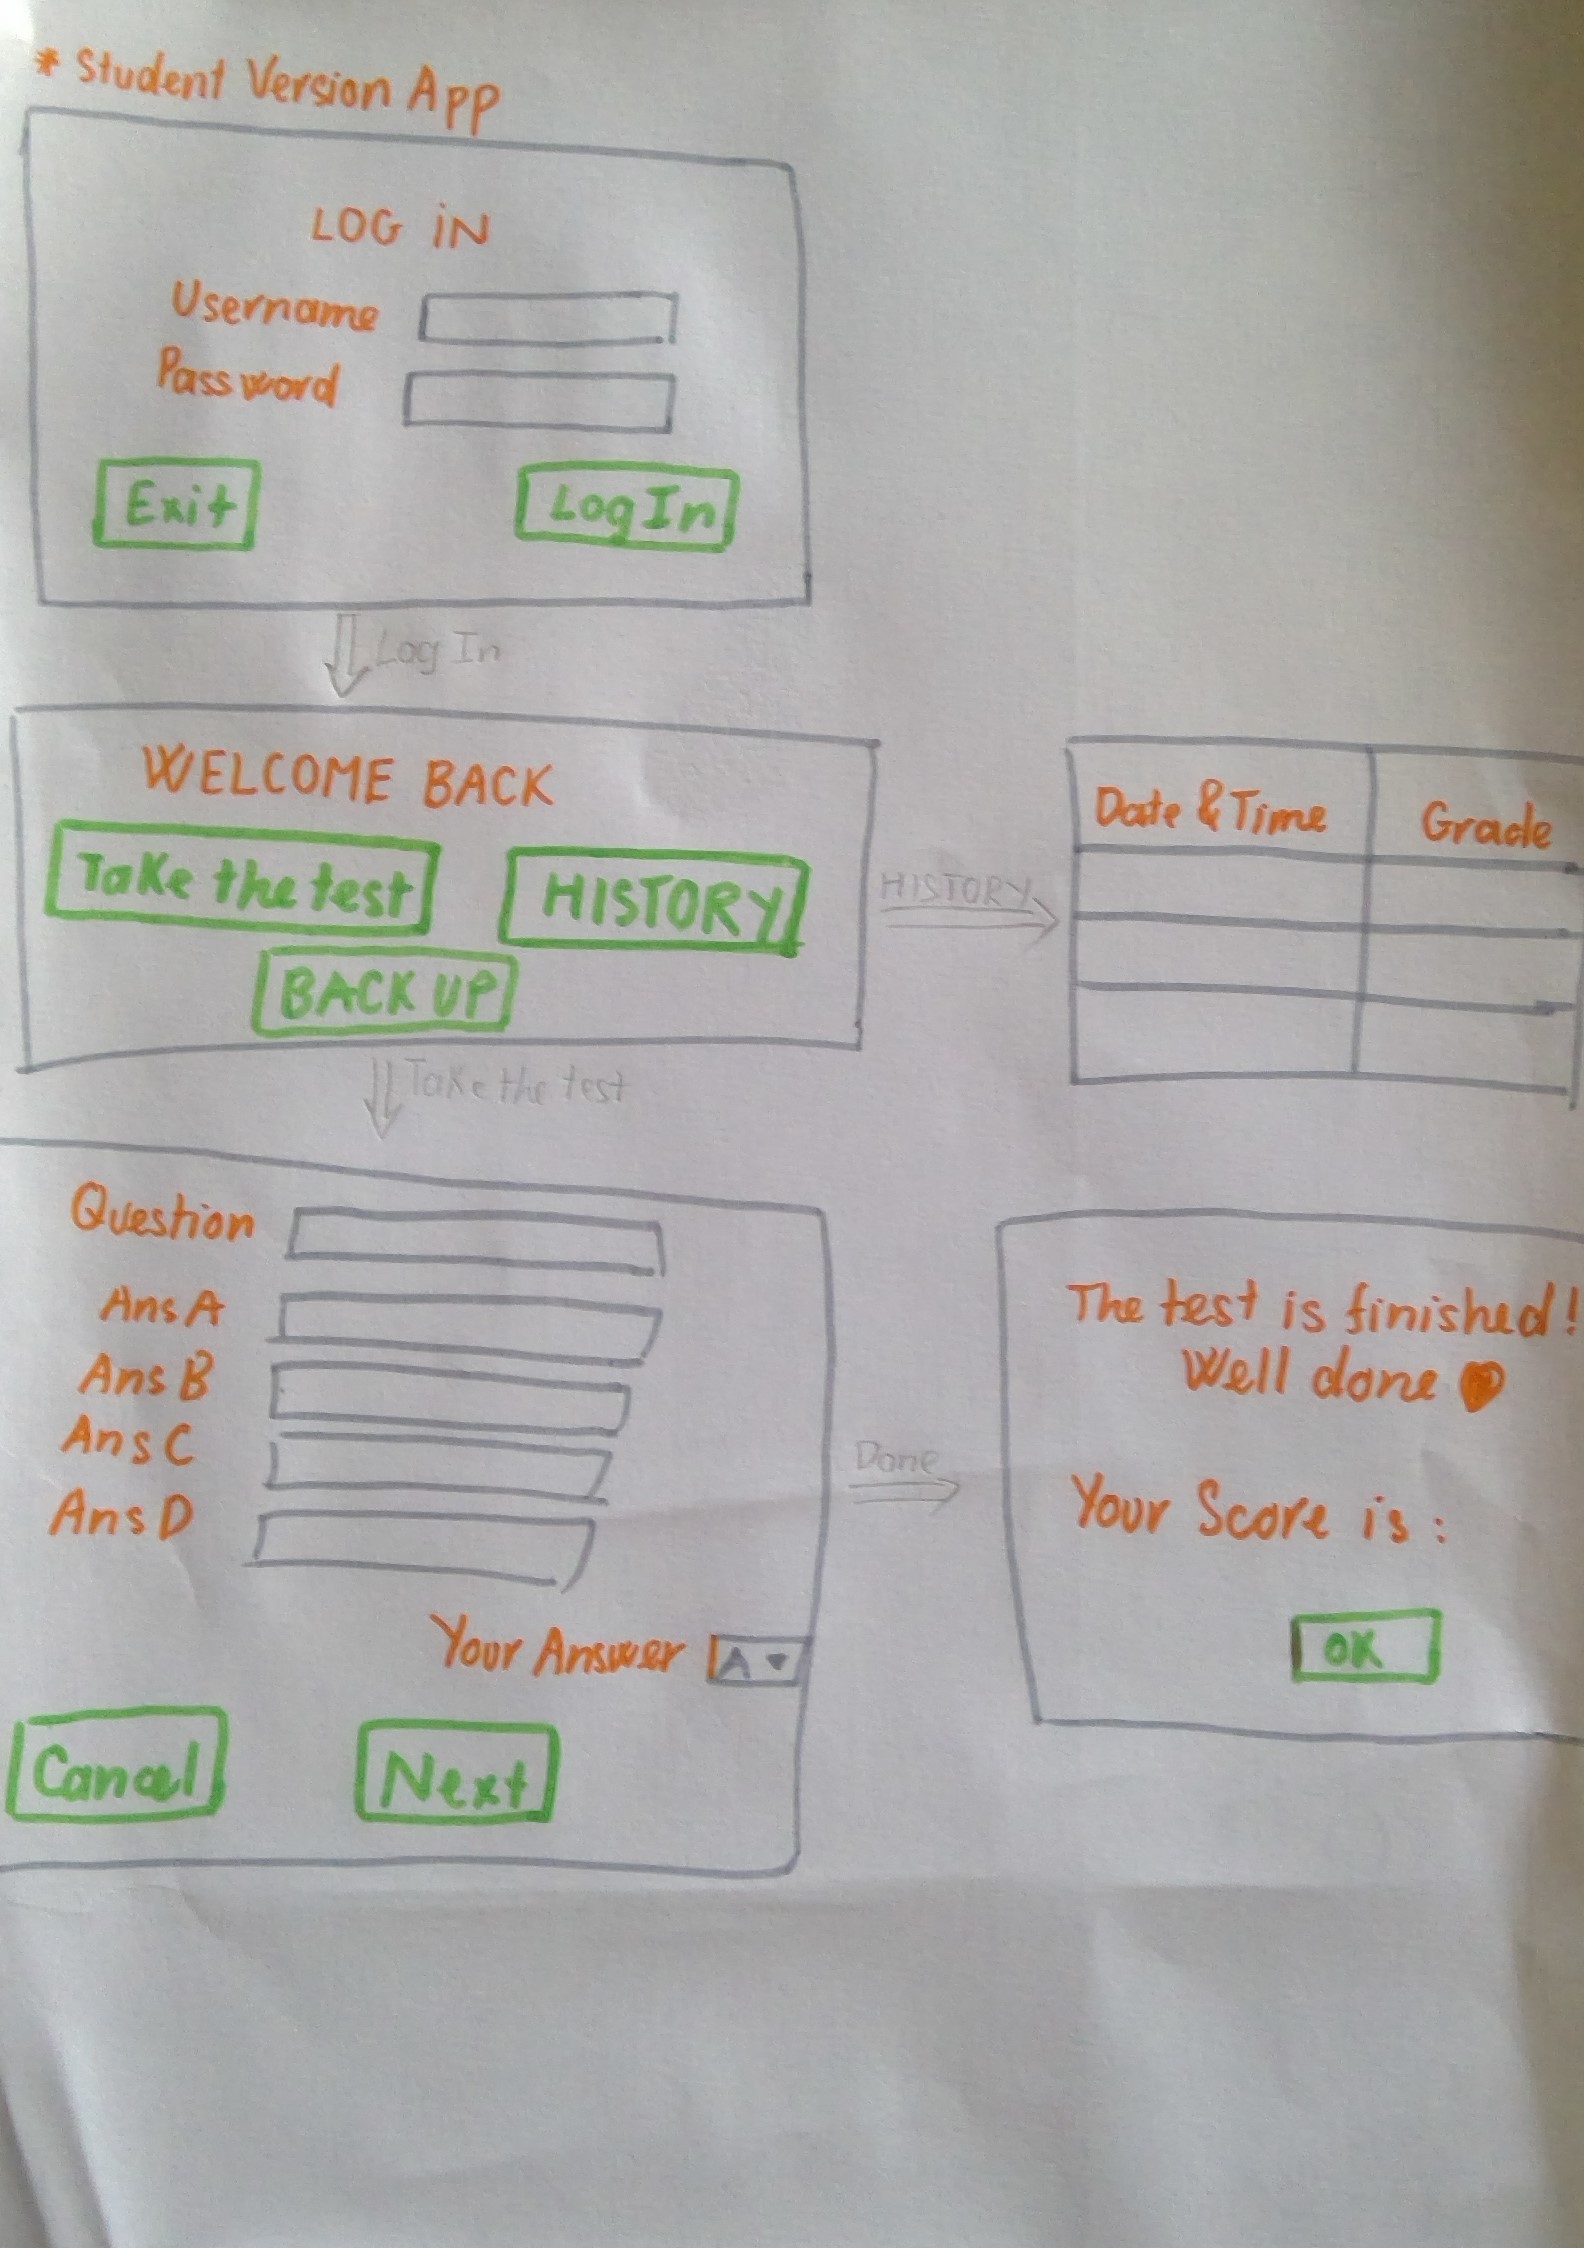 * Student Version App
LOG iN
Username
Password
Exit
Log In
Log In
WELCOME BACK
Take the test
HISTORY
BACK UP
HISTORY
Date & Time
Grade
Take the test
Question
Ans A
Ans B
Ans C
Ans D
Your Answer
A
Cancel
Next
Done
The test is finished!
Well done
Your Score is :
OK